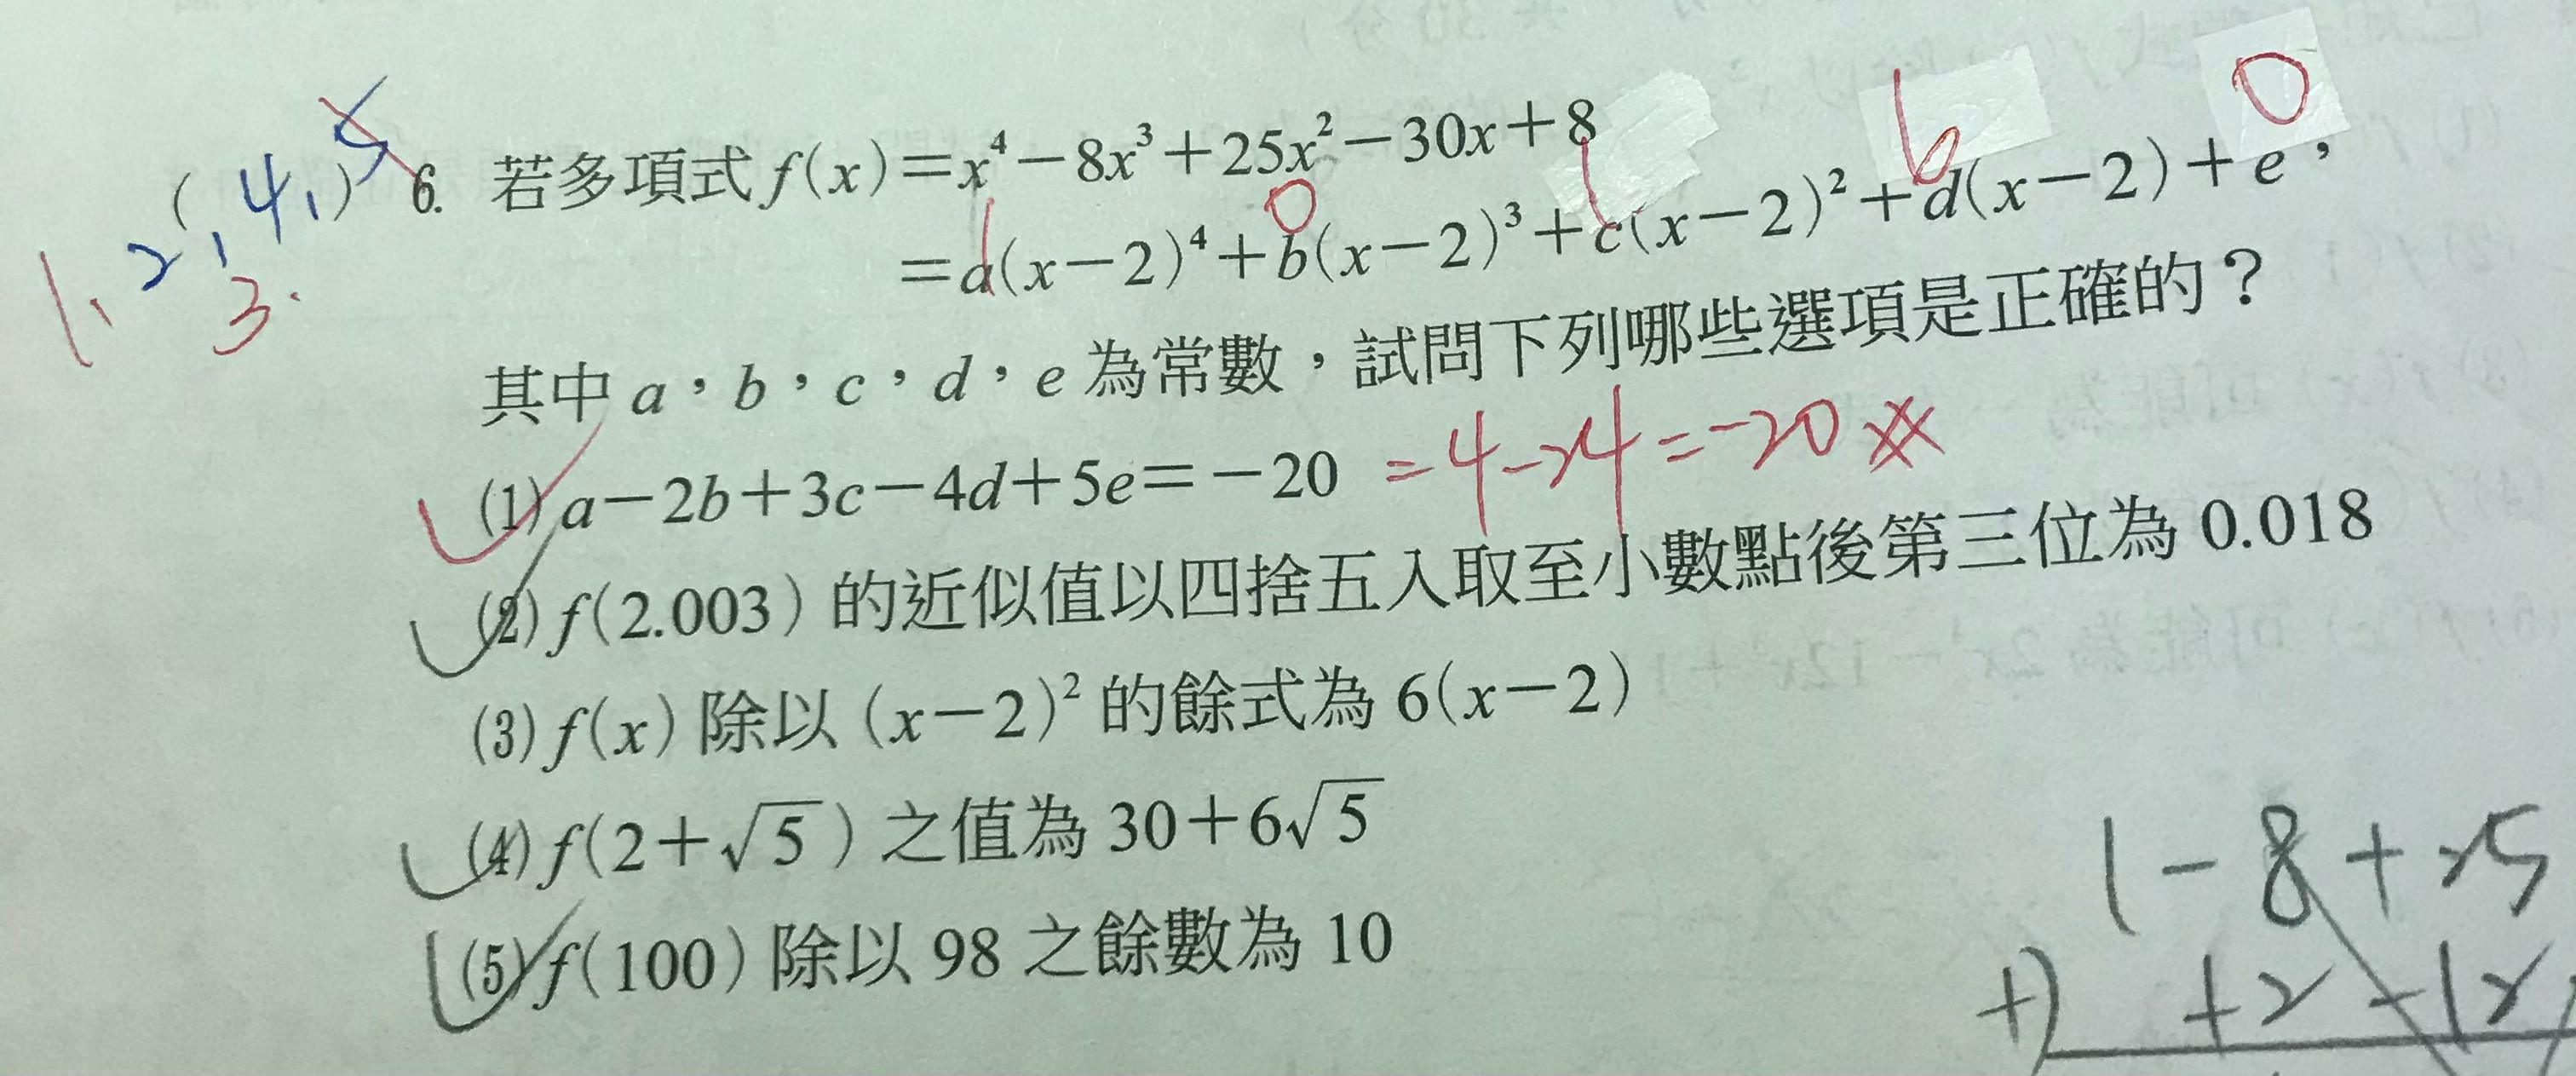 ( 2, 4, 5 ) 6. 若多項式 f(x)=x⁴-8x³+25x²-30x+8
1, 3.
1 0 1 6 0
=a(x-2)⁴+b(x-2)³+c(x-2)²+d(x-2)+e，
其中 a，b，c，d，e 為常數，試問下列哪些選項是正確的？
(1) a-2b+3c-4d+5e=-20 =4-24=-20
(2) f(2.003) 的近似值以四捨五入取至小數點後第三位為 0.018
(3) f(x) 除以 (x-2)² 的餘式為 6(x-2)
(4) f(2+√5) 之值為 30+6√5
(5) f(100) 除以 98 之餘數為 10
1-8+25
+) +2-12